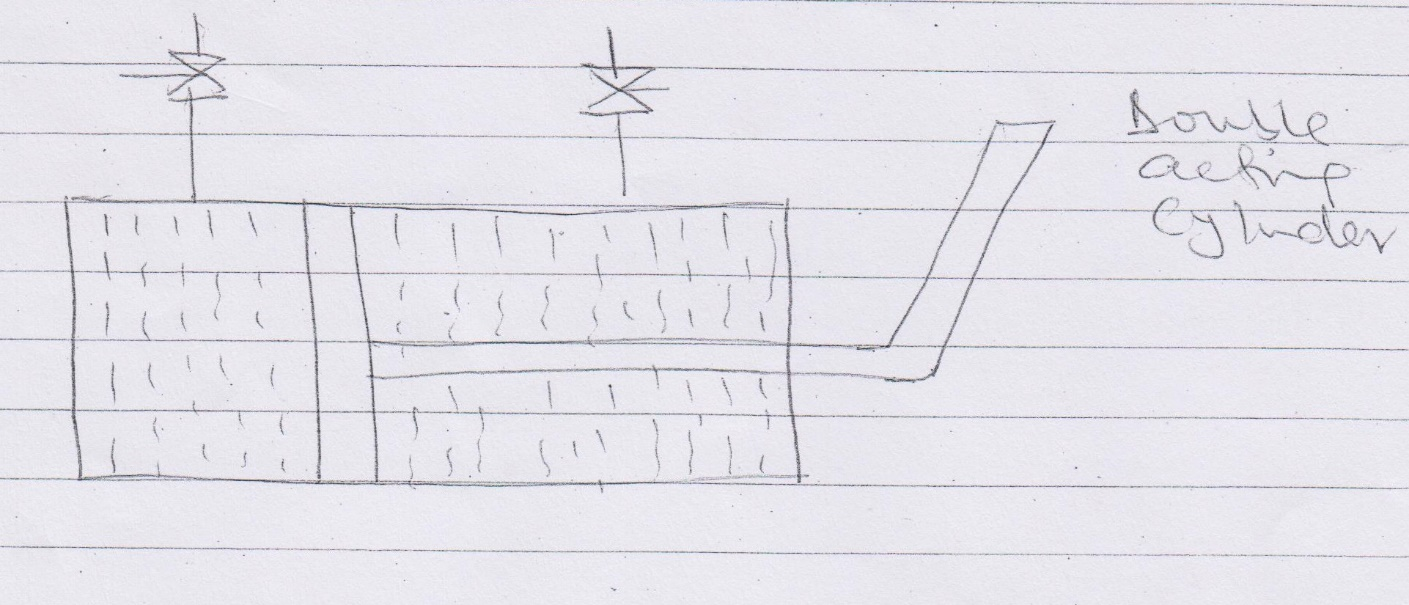 Double
acting
Cylinder